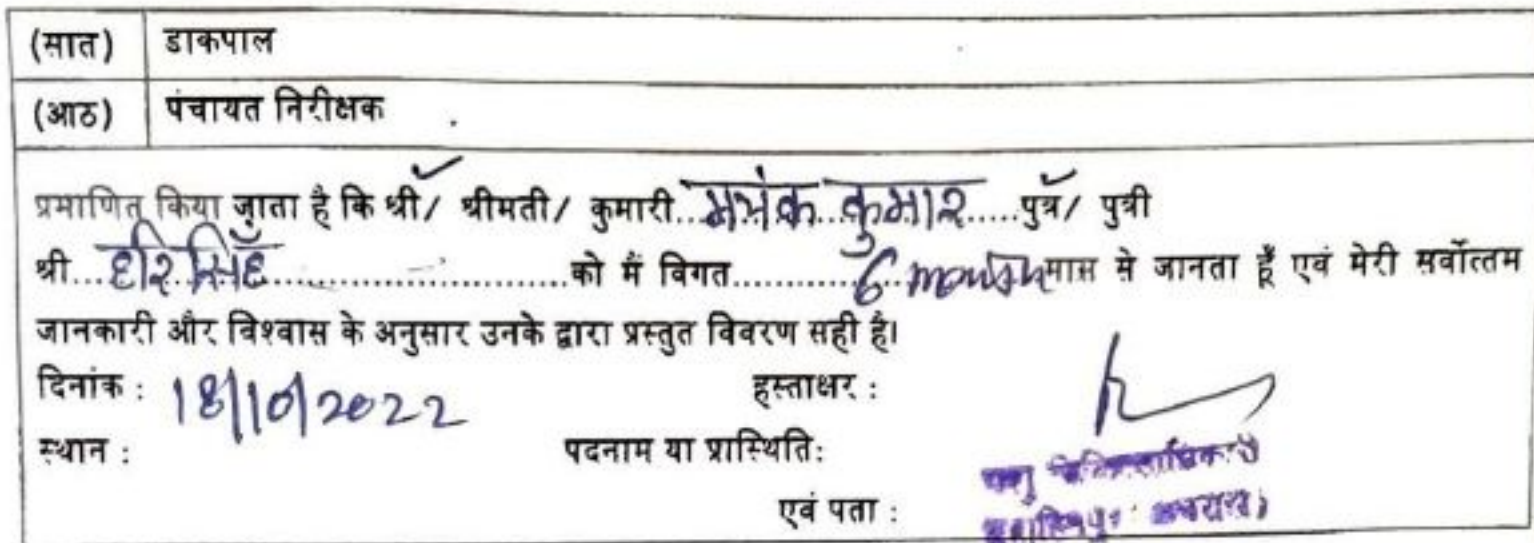 (सात) डाकपाल
(आठ) पंचायत निरीक्षक
प्रमाणित किया जाता है कि श्री/ श्रीमती/ कुमारी...मयंक कुमार.....पुत्र/ पुत्री
श्री...हरि सिंह..............................को मैं विगत.............6 month मास से जानता हूँ एवं मेरी सर्वोत्तम
जानकारी और विश्वास के अनुसार उनके द्वारा प्रस्तुत विवरण सही है।
दिनांक : 18/10/2022 हस्ताक्षर :
स्थान : पदनाम या प्रास्थिति:
पशु चिकित्साधिकारी
एवं पता :